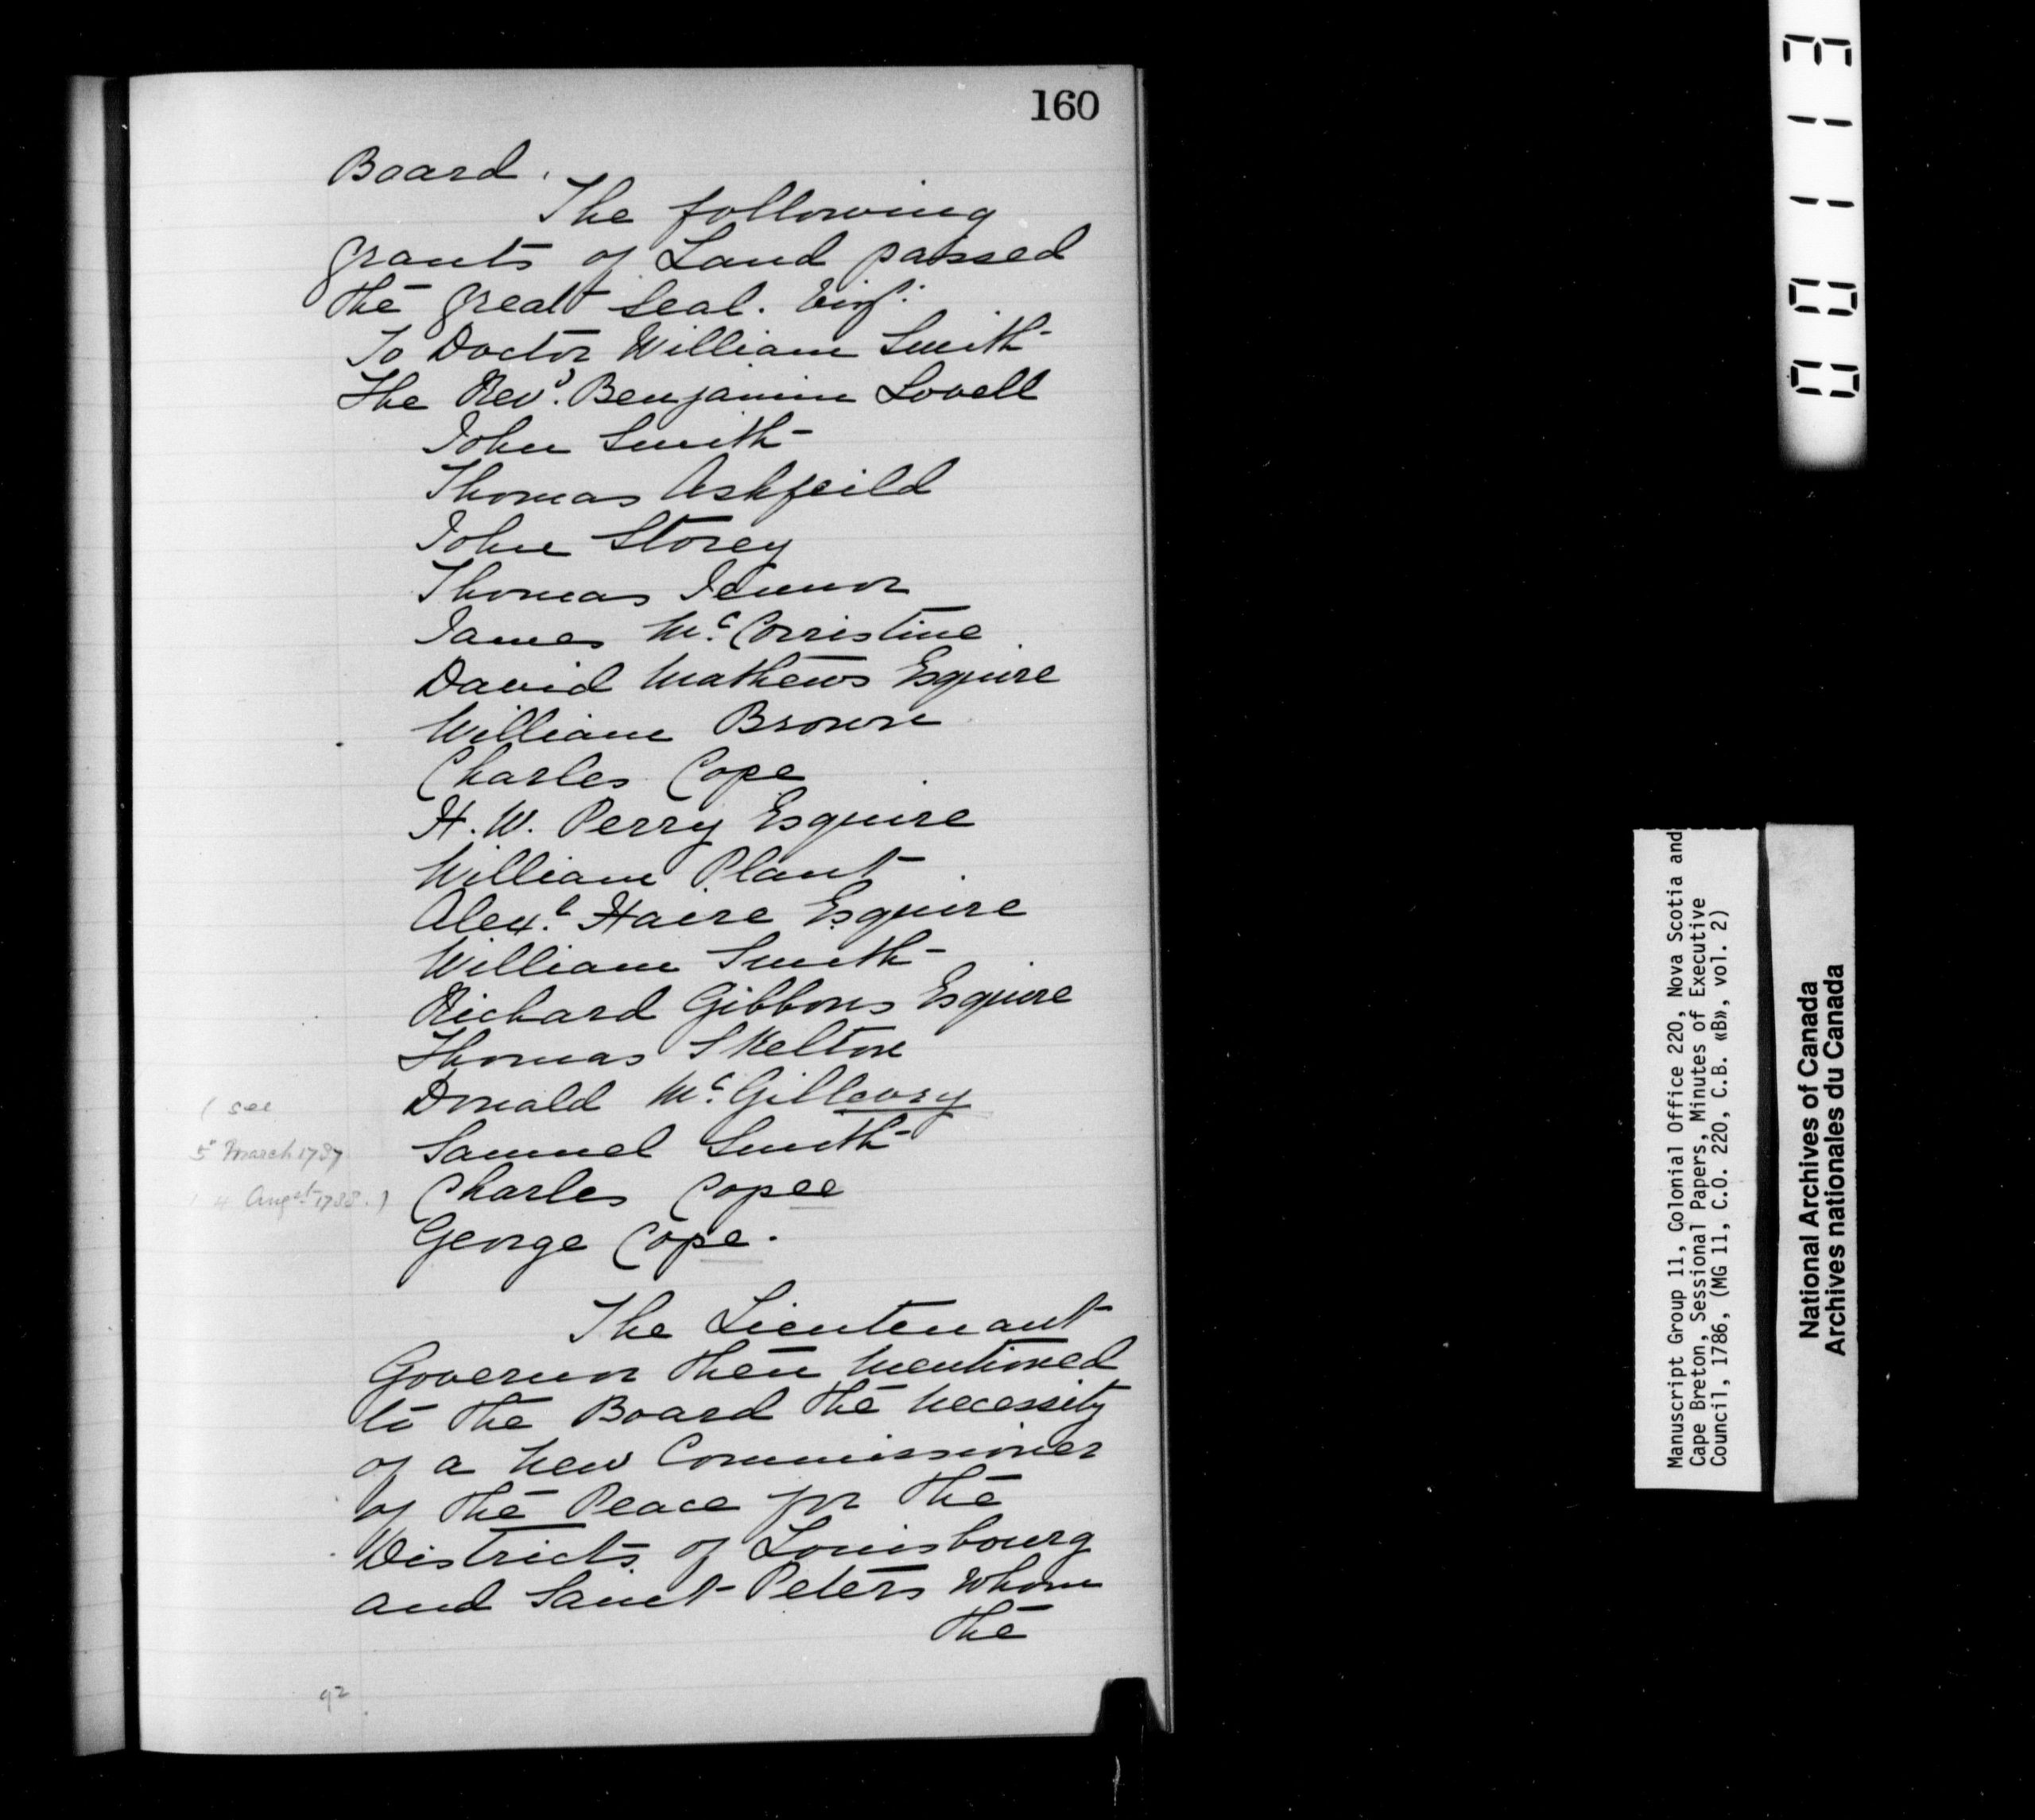 160
Board.
The following
grants of Land passed
the great seal. Viz.
To Doctor William Smith
The Revd. Benjamin Lovell
John Smith
Thomas Ashfeild
John Storey
Thomas Jennor
James Mc. Corristine
David Mathews Esquire
William Brown
Charles Cope
H. W. Perry Esquire
William Plant
Alexr. Haire Esquire
William Smith
Richard Gibbons Esquire
Thomas Skelton
Donald Mc. Gillevry
(see
5 March 1787
4 Augst 1788.)
Samuel Smith
Charles Copee
George Cope.
The Lieutenant
Governor then mentioned
to the Board the necessity
of a new Commissioner
of the Peace for the
Districts of Louisbourg
and Saint Peters whom
the
92
0 0 1 1 3
Manuscript Group 11, Colonial Office 220, Nova Scotia and
Cape Breton, Sessional Papers, Minutes of Executive
Council, 1786, (MG 11, C.O. 220, C.B. «B», vol. 2)
National Archives of Canada
Archives nationales du Canada